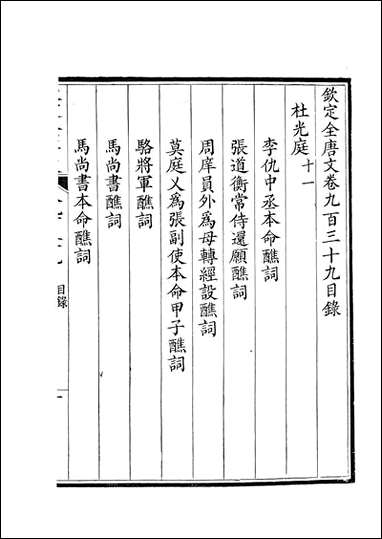 欽定全唐文卷九百三十九目錄
杜光庭十一
李仇中丞本命醮詞
張道衡常侍還願醮詞
周庠員外為母轉經設醮詞
莫庭乂為張副使本命甲子醮詞
駱將軍醮詞
馬尚書醮詞
馬尚書本命醮詞
目錄